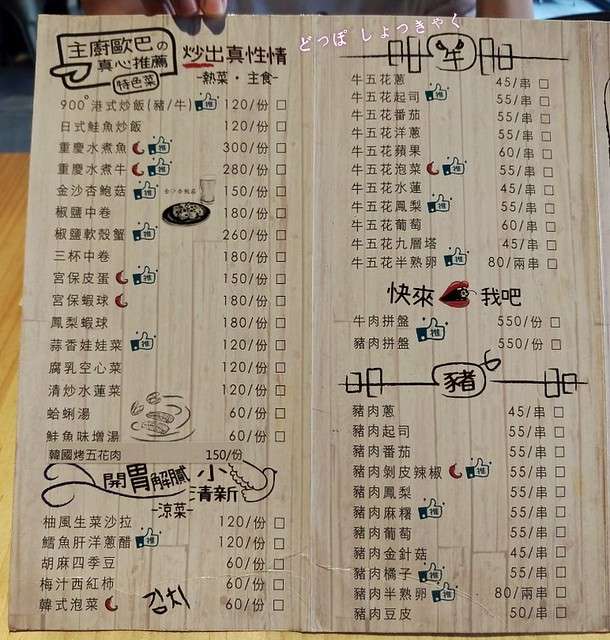 どっぽ しょっきゃく
主廚歐巴の
真心推薦
特色菜
炒出真性情
-熱菜・主食-
900°港式炒飯(豬/牛) 推 120/份 □
日式鮭魚炒飯 120/份 □
重慶水煮魚 推 300/份 □
重慶水煮牛 推 280/份 □
金沙杏鮑菇 推 150/份 □
椒鹽中卷 180/份 □
椒鹽軟殼蟹 推 260/份 □
三杯中卷 180/份 □
宮保皮蛋 推 150/份 □
宮保蝦球 180/份 □
鳳梨蝦球 180/份 □
蒜香娃娃菜 推 120/份 □
腐乳空心菜 120/份 □
清炒水蓮菜 120/份 □
蛤蜊湯 60/份 □
鮮魚味增湯 60/份 □
韓國烤五花肉 150/份
開胃解膩小清新
-涼菜-
柚風生菜沙拉 120/份 □
鱈魚肝洋蔥醋 推 120/份 □
胡麻四季豆 60/份 □
梅汁西紅柿 60/份 □
韓式泡菜 김치 60/份 □
牛
牛五花蔥 45/串 □
牛五花起司 推 55/串 □
牛五花番茄 55/串 □
牛五花洋蔥 55/串 □
牛五花蘋果 60/串 □
牛五花泡菜 推 55/串 □
牛五花水蓮 45/串 □
牛五花鳳梨 推 55/串 □
牛五花葡萄 60/串 □
牛五花九層塔 45/串 □
牛五花半熟卵 推 80/兩串 □
快來 我吧
牛肉拼盤 550/份 □
推
豬肉拼盤 550/份 □
豬
豬肉蔥 45/串 □
豬肉起司 55/串 □
豬肉番茄 55/串 □
豬肉剝皮辣椒 推 55/串 □
豬肉鳳梨 55/串 □
豬肉麻糬 推 55/串 □
豬肉葡萄 55/串 □
豬肉金針菇 45/串 □
豬肉橘子 推 55/串 □
豬肉半熟卵 推 80/兩串 □
豬肉豆皮 50/串 □